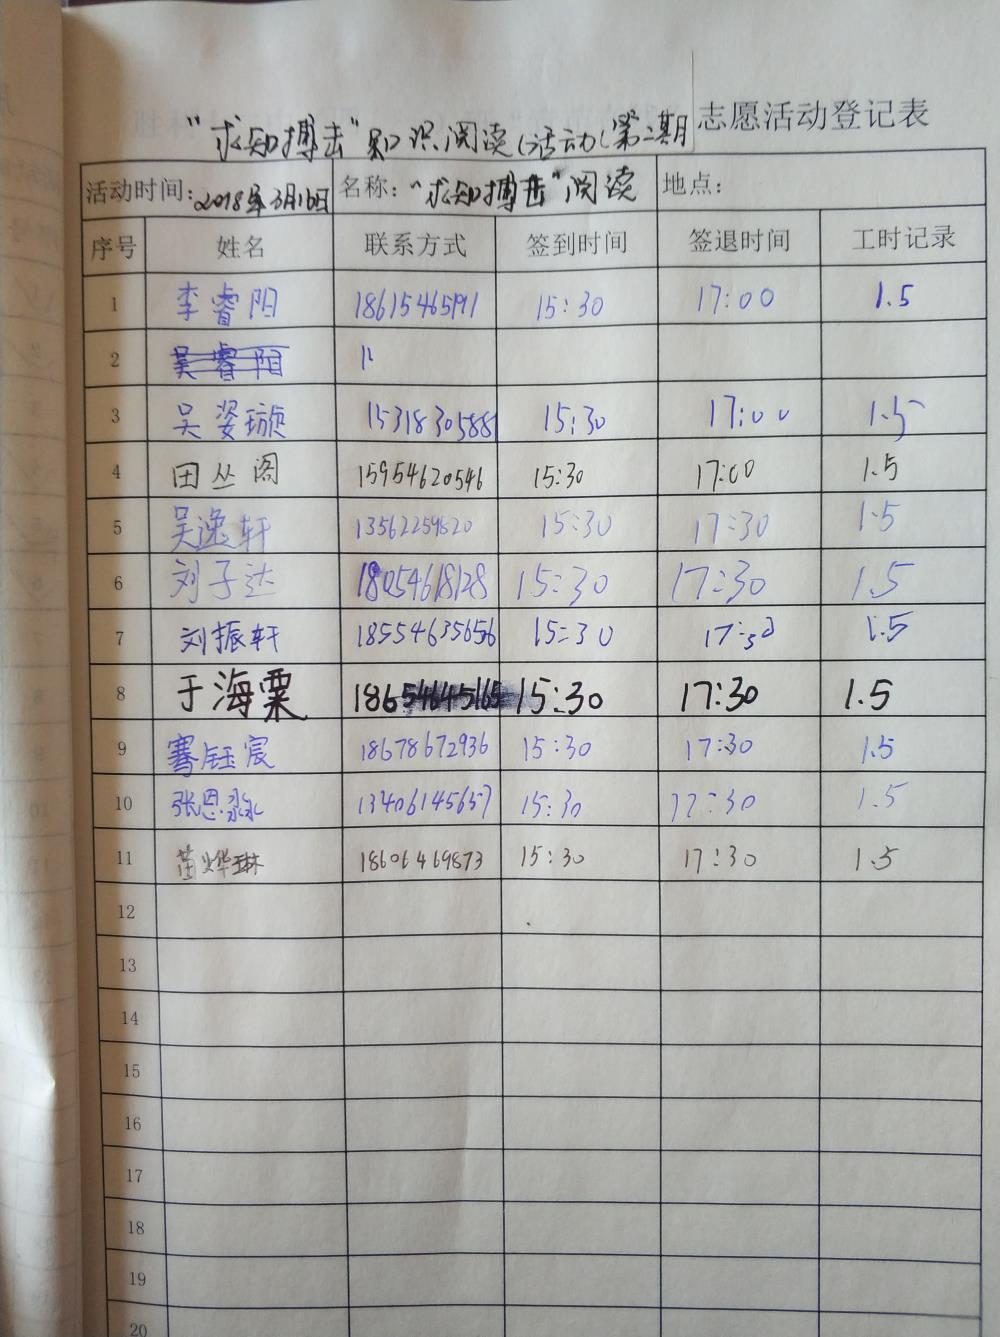 "求知搏击"知识阅读(活动(第二期 志愿活动登记表
活动时间: 2018年3月16日 名称: "求知搏击"阅读 地点:
序号 姓名 联系方式 签到时间 签退时间 工时记录
1 李睿阳 18615465191 15:30 17:00 1.5
2 吴睿阳 11
3 吴姿璇 15318305881 15:30 17:00 1.5
4 田丛阁 15954620546 15:30 17:00 1.5
5 吴逸轩 13562259820 15:30 17:30 1.5
6 刘子达 18054618128 15:30 17:30 1.5
7 刘振轩 18554635656 15:30 17:30 1.5
8 于海粟 18654645165 15:30 17:30 1.5
9 骞钰宸 18678672936 15:30 17:30 1.5
10 张恩淼 13406145657 15:30 17:30 1.5
11 苗烨琳 18606469873 15:30 17:30 1.5
12
13
14
15
16
17
18
19
20